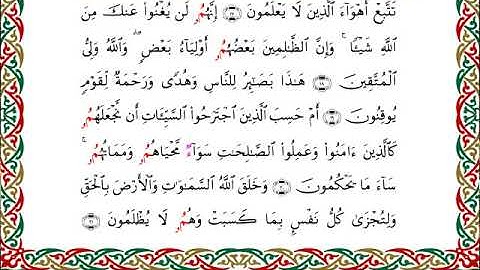 تَتَّبِعْ أَهْوَآءَ ٱلَّذِينَ لَا يَعْلَمُونَ ۝ إِنَّهُمُۥ لَن يُغْنُوا۟ عَنكَ مِنَ
ٱللَّهِ شَيْـًٔا ۚ وَإِنَّ ٱلظَّـٰلِمِينَ بَعْضُهُمُۥ أَوْلِيَآءُ بَعْضٍ ۖ وَٱللَّهُ وَلِىُّ
ٱلْمُتَّقِينَ ۝ هَـٰذَا بَصَـٰٓئِرُ لِلنَّاسِ وَهُدًى وَرَحْمَةٌ لِّقَوْمٍ
يُوقِنُونَ ۝ أَمْ حَسِبَ ٱلَّذِينَ ٱجْتَرَحُوا۟ ٱلسَّيِّـَٔاتِ أَن نَّجْعَلَهُمُۥ
كَٱلَّذِينَ ءَامَنُوا۟ وَعَمِلُوا۟ ٱلصَّـٰلِحَـٰتِ سَوَآءٌ مَّحْيَاهُمُۥ وَمَمَاتُهُمُۥ ۚ
سَآءَ مَا يَحْكُمُونَ ۝ وَخَلَقَ ٱللَّهُ ٱلسَّمَـٰوَٰتِ وَٱلْأَرْضَ بِٱلْحَقِّ
وَلِتُجْزَىٰ كُلُّ نَفْسٍۭ بِمَا كَسَبَتْ وَهُمُۥ لَا يُظْلَمُونَ ۝